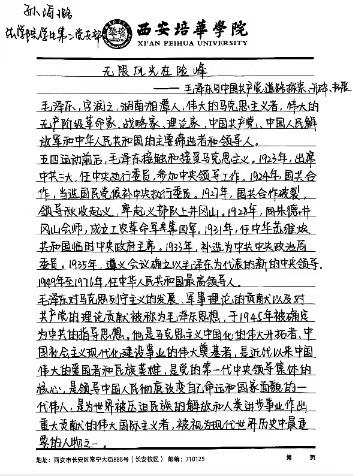 孙海璐
法学院学生第二党支部
西安培華学院
XI'AN PEIHUA UNIVERSITY
无限风光在险峰
——毛泽东与中国共产党道路探索、开辟、拓展
毛泽东,字润之,湖南湘潭人,伟大的马克思主义者,伟大的
无产阶级革命家、战略家、理论家,中国共产党、中国人民解
放军和中华人民共和国的主要缔造者和领导人。
五四运动前后,毛泽东接触和接受马克思主义,1923年,出席
中共三大,任中央执行委员,参加中央领导工作。1924年,国共合
作,当选国民党候补中央执行委员。1927年,国共合作破裂,
领导秋收起义,率起义部队上井冈山。1928年,同朱德井
冈山会师,成立工农革命军第四军,1931年,任中华苏维埃
共和国临时中央政府主席。1933年,补选为中共中央政治局
委员。1935年,遵义会议确立以毛泽东为代表的新的中央领导。
1949年至1976年,任中华人民共和国最高领导人。
毛泽东对马克思列宁主义的发展、军事理论的贡献以及对
共产党的理论贡献被称为毛泽东思想,于1945年被确定
为中共的指导思想。他是马克思主义中国化的伟大开拓者、中
国社会主义现代化建设事业的伟大奠基者,是近代以来中国
伟大的爱国者和民族英雄,是党的第一代中央领导集体的
核心,是领导中国人民彻底改变自己命运和国家面貌的一
代伟人,是为世界被压迫民族的解放和人类进步事业作出
重大贡献的伟大国际主义者,被视为现代世界历史中最重
要的人物之一。
地址:西安市长安区常宁大街888号(长安校区) 邮编:710125 第 页